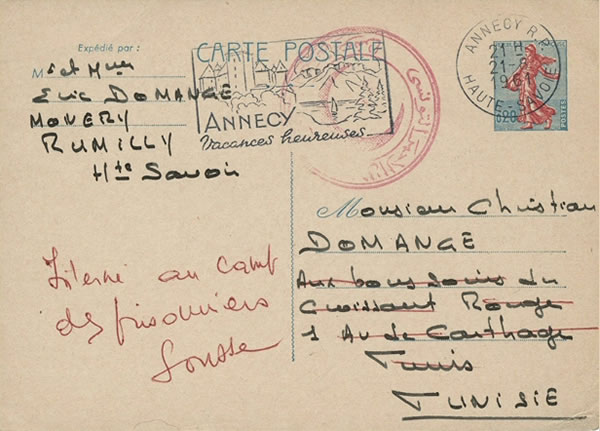 Expédié par :
CARTE POSTALE
M r et Mme
Eric DOMANGE
MONERY
RUMILLY
Hte Savoie
ANNECY
Vacances heureuses
ANNECY R.P.
21 H
21-8
1961
HAUTE-SAVOIE
POSTES
Monsieur Christian
DOMANGE
Aux bons soins du
Croissant Rouge
1 Av de Carthage
Tunis
TUNISIE
Interné au camp
des prisonniers
Sousse